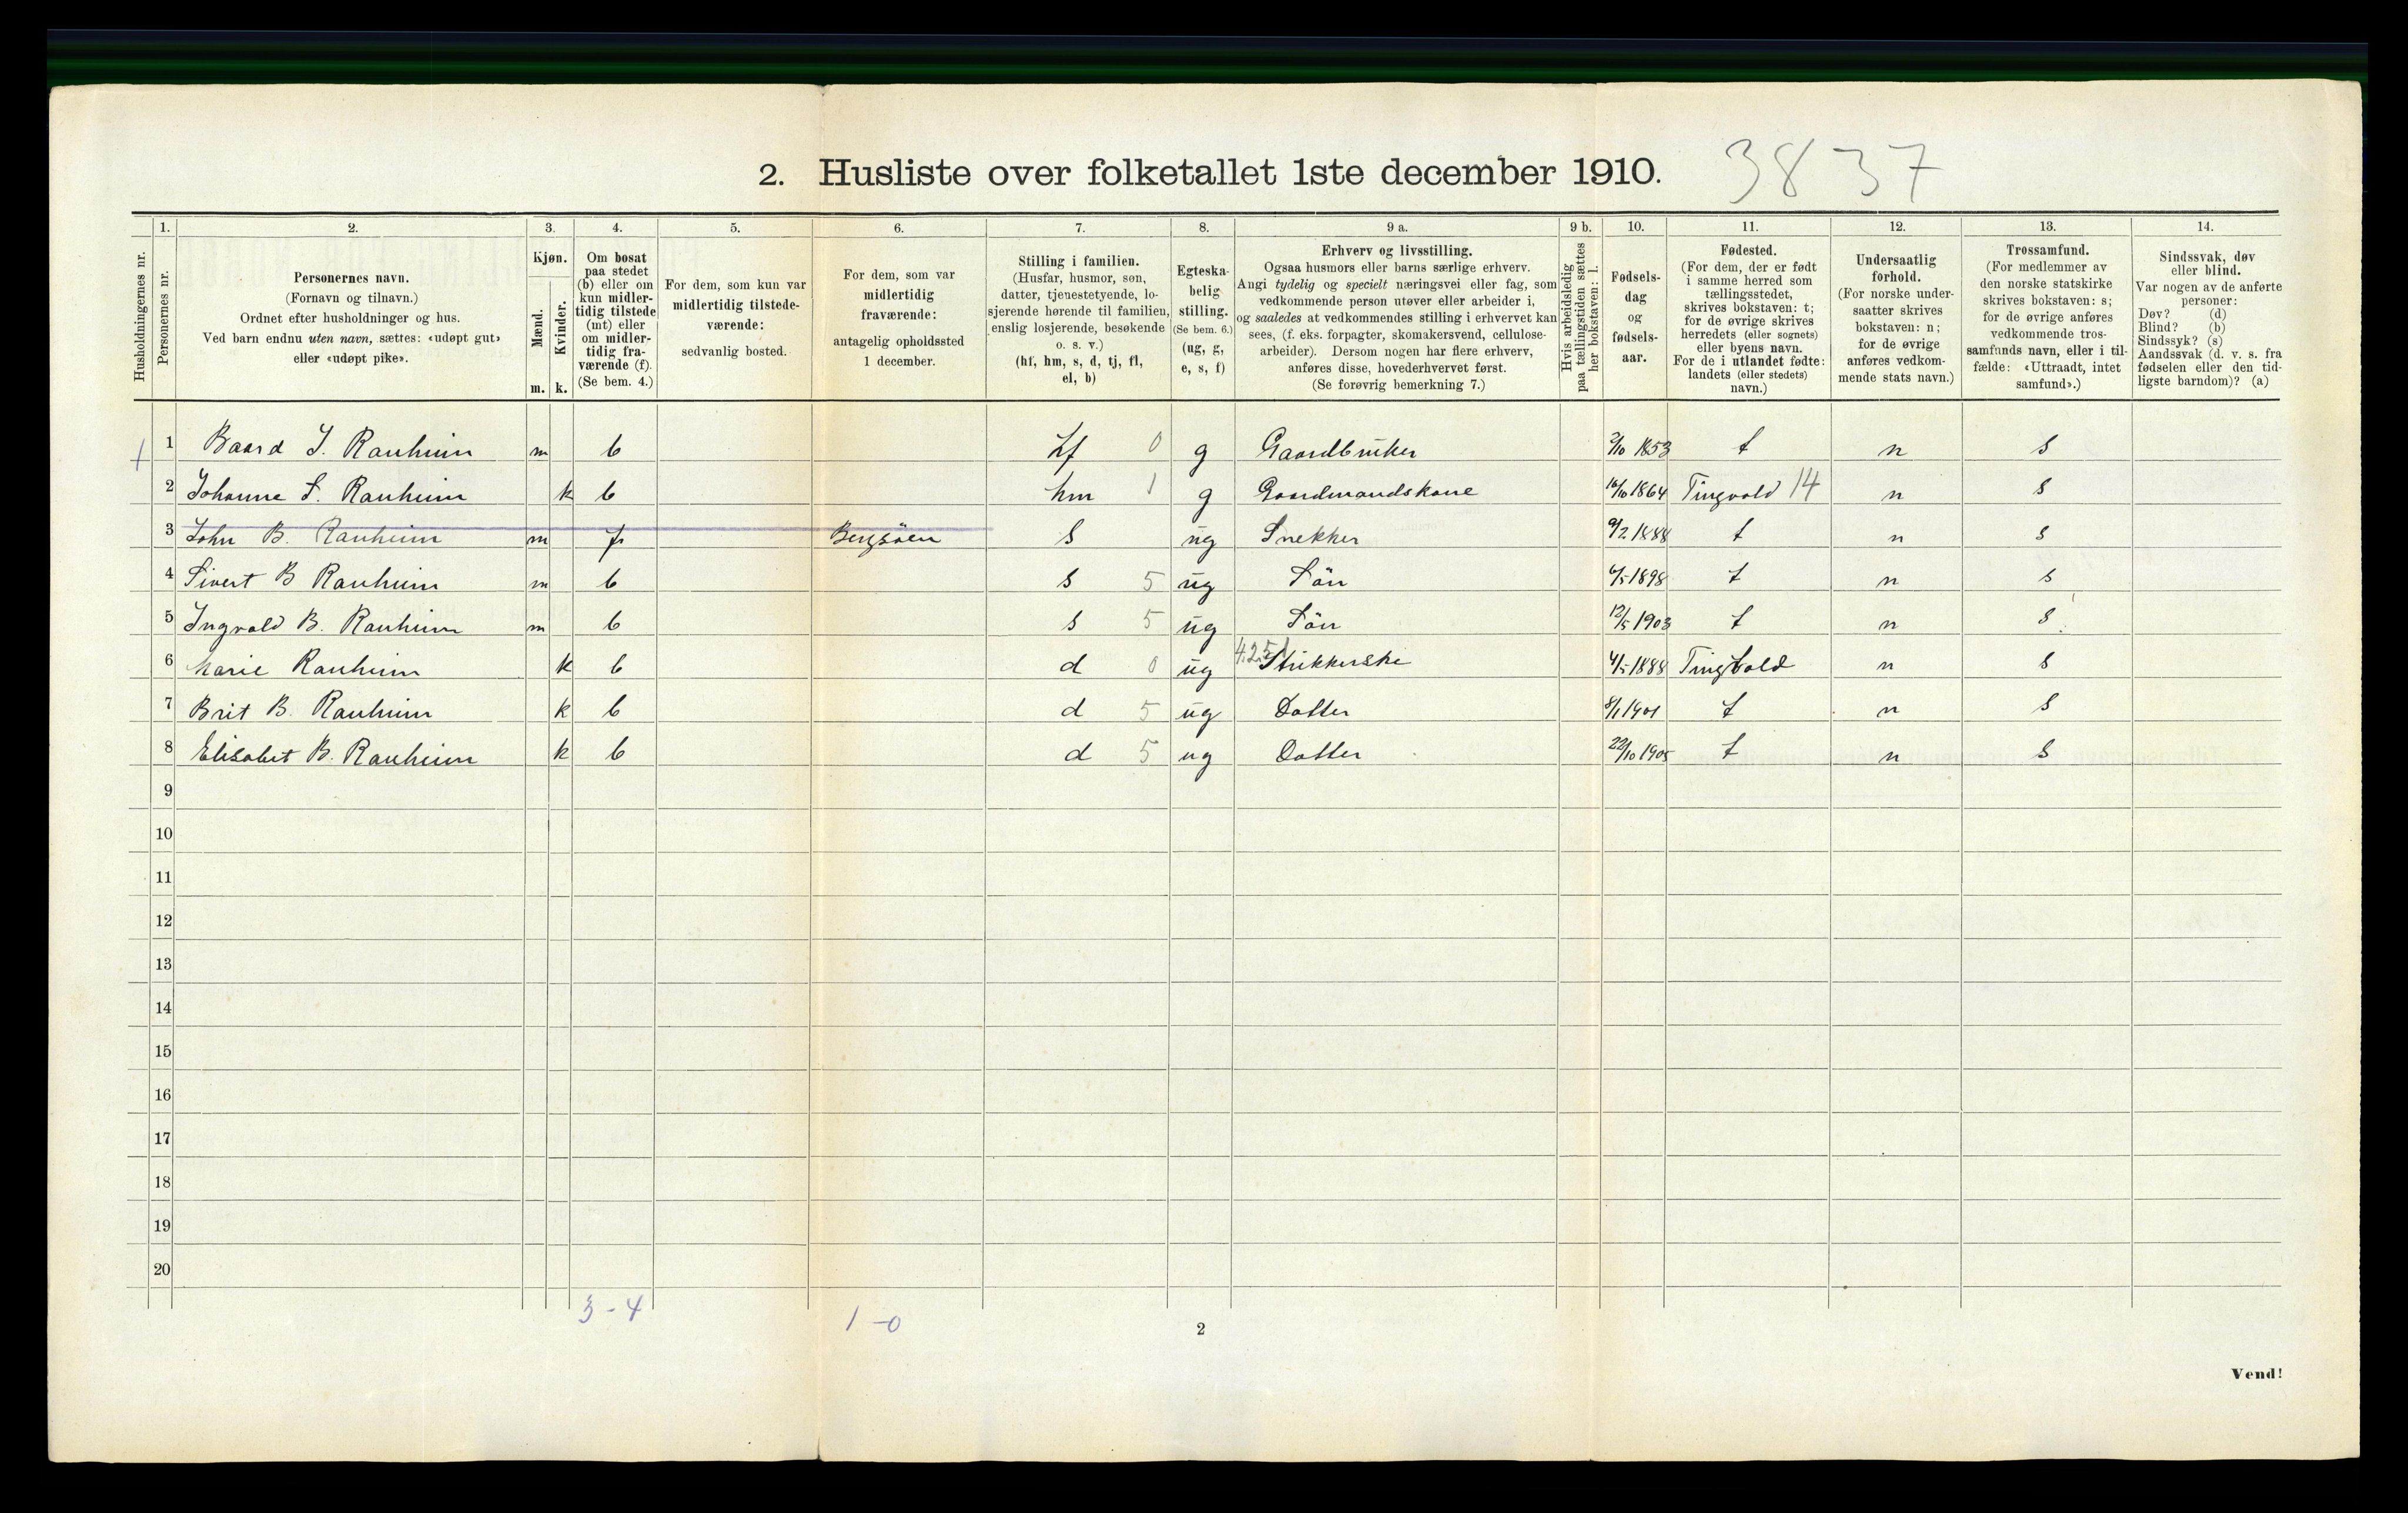 2. Husliste over folketallet 1ste december 1910. 3837
1. 2. 3. 4. 5. 6. 7. 8. 9 a. 9 b. 10. 11. 12. 13. 14.
Husholdningernes nr.
Personernes nr.
Personernes navn.
(Fornavn og tilnavn.)
Ordnet efter husholdninger og hus.
Ved barn endnu uten navn, sættes: «udøpt gut»
eller «udøpt pike».
Kjøn.
Mænd.
Kvinder.
m. k.
Om bosat
paa stedet
(b) eller om
kun midler-
tidig tilstede
(mt) eller
om midler-
tidig fra-
værende (f).
(Se bem. 4.)
For dem, som kun var
midlertidig tilstede-
værende:
sedvanlig bosted.
For dem, som var
midlertidig
fraværende:
antagelig opholdssted
1 december.
Stilling i familien.
(Husfar, husmor, søn,
datter, tjenestetyende, lo-
sjerende hørende til familien,
enslig losjerende, besøkende
o. s. v.)
(hf, hm, s, d, tj, fl,
el, b)
Egteska-
belig
stilling.
(Se bem. 6.)
(ug, g,
e, s, f)
Erhverv og livsstilling.
Ogsaa husmors eller barns særlige erhverv.
Angi tydelig og specielt næringsvei eller fag, som
vedkommende person utøver eller arbeider i,
og saaledes at vedkommendes stilling i erhvervet kan
sees, (f. eks. forpagter, skomakersvend, cellulose-
arbeider). Dersom nogen har flere erhverv,
anføres disse, hovederhvervet først.
(Se forøvrig bemerkning 7.)
Hvis arbeidsledig
paa tællingstiden sættes
her bokstaven: l.
Fødsels-
dag
og
fødsels-
aar.
Fødested.
(For dem, der er født
i samme herred som
tællingsstedet,
skrives bokstaven: t;
for de øvrige skrives
herredets (eller sognets)
eller byens navn.
For de i utlandet fødte:
landets (eller stedets)
navn.)
Undersaatlig
forhold.
(For norske under-
saatter skrives
bokstaven: n;
for de øvrige
anføres vedkom-
mende stats navn.)
Trossamfund.
(For medlemmer av
den norske statskirke
skrives bokstaven: s;
for de øvrige anføres
vedkommende tros-
samfunds navn, eller i til-
fælde: «Uttraadt, intet
samfund».)
Sindssvak, døv
eller blind.
Var nogen av de anførte
personer:
Døv? (d)
Blind? (b)
Sindssyk? (s)
Aandssvak (d. v. s. fra
fødselen eller den tid-
ligste barndom)? (a)
1 1 Baard J. Ranheim m b hf 0 g Gaardbruker 2/10 1853 t n s
2 Johanne S. Ranheim k b hm 1 g Gaardmandskone 16/10 1864 Tingvold 14 n s
3 John B. Ranheim m f Bergsöen s ug Snekker 9/2 1888 t n s
4 Sivert B Ranheim m b s 5 ug Sön 6/5 1898 t n s
5 Ingvald B. Ranheim m b s 5 ug Sön 12/5 1903 t n s
6 Marie Ranheim k b d 0 ug Strikkerske 4/5 1888 Tingvold n s
7 Brit B. Ranheim k b d 5 ug Datter 8/1 1901 t n s
8 Elisabet B. Ranheim k b d 5 ug Datter 22/10 1905 t n s
9
10
11
12
13
14
15
16
17
18
19
20
3-4 1-0
2
Vend!